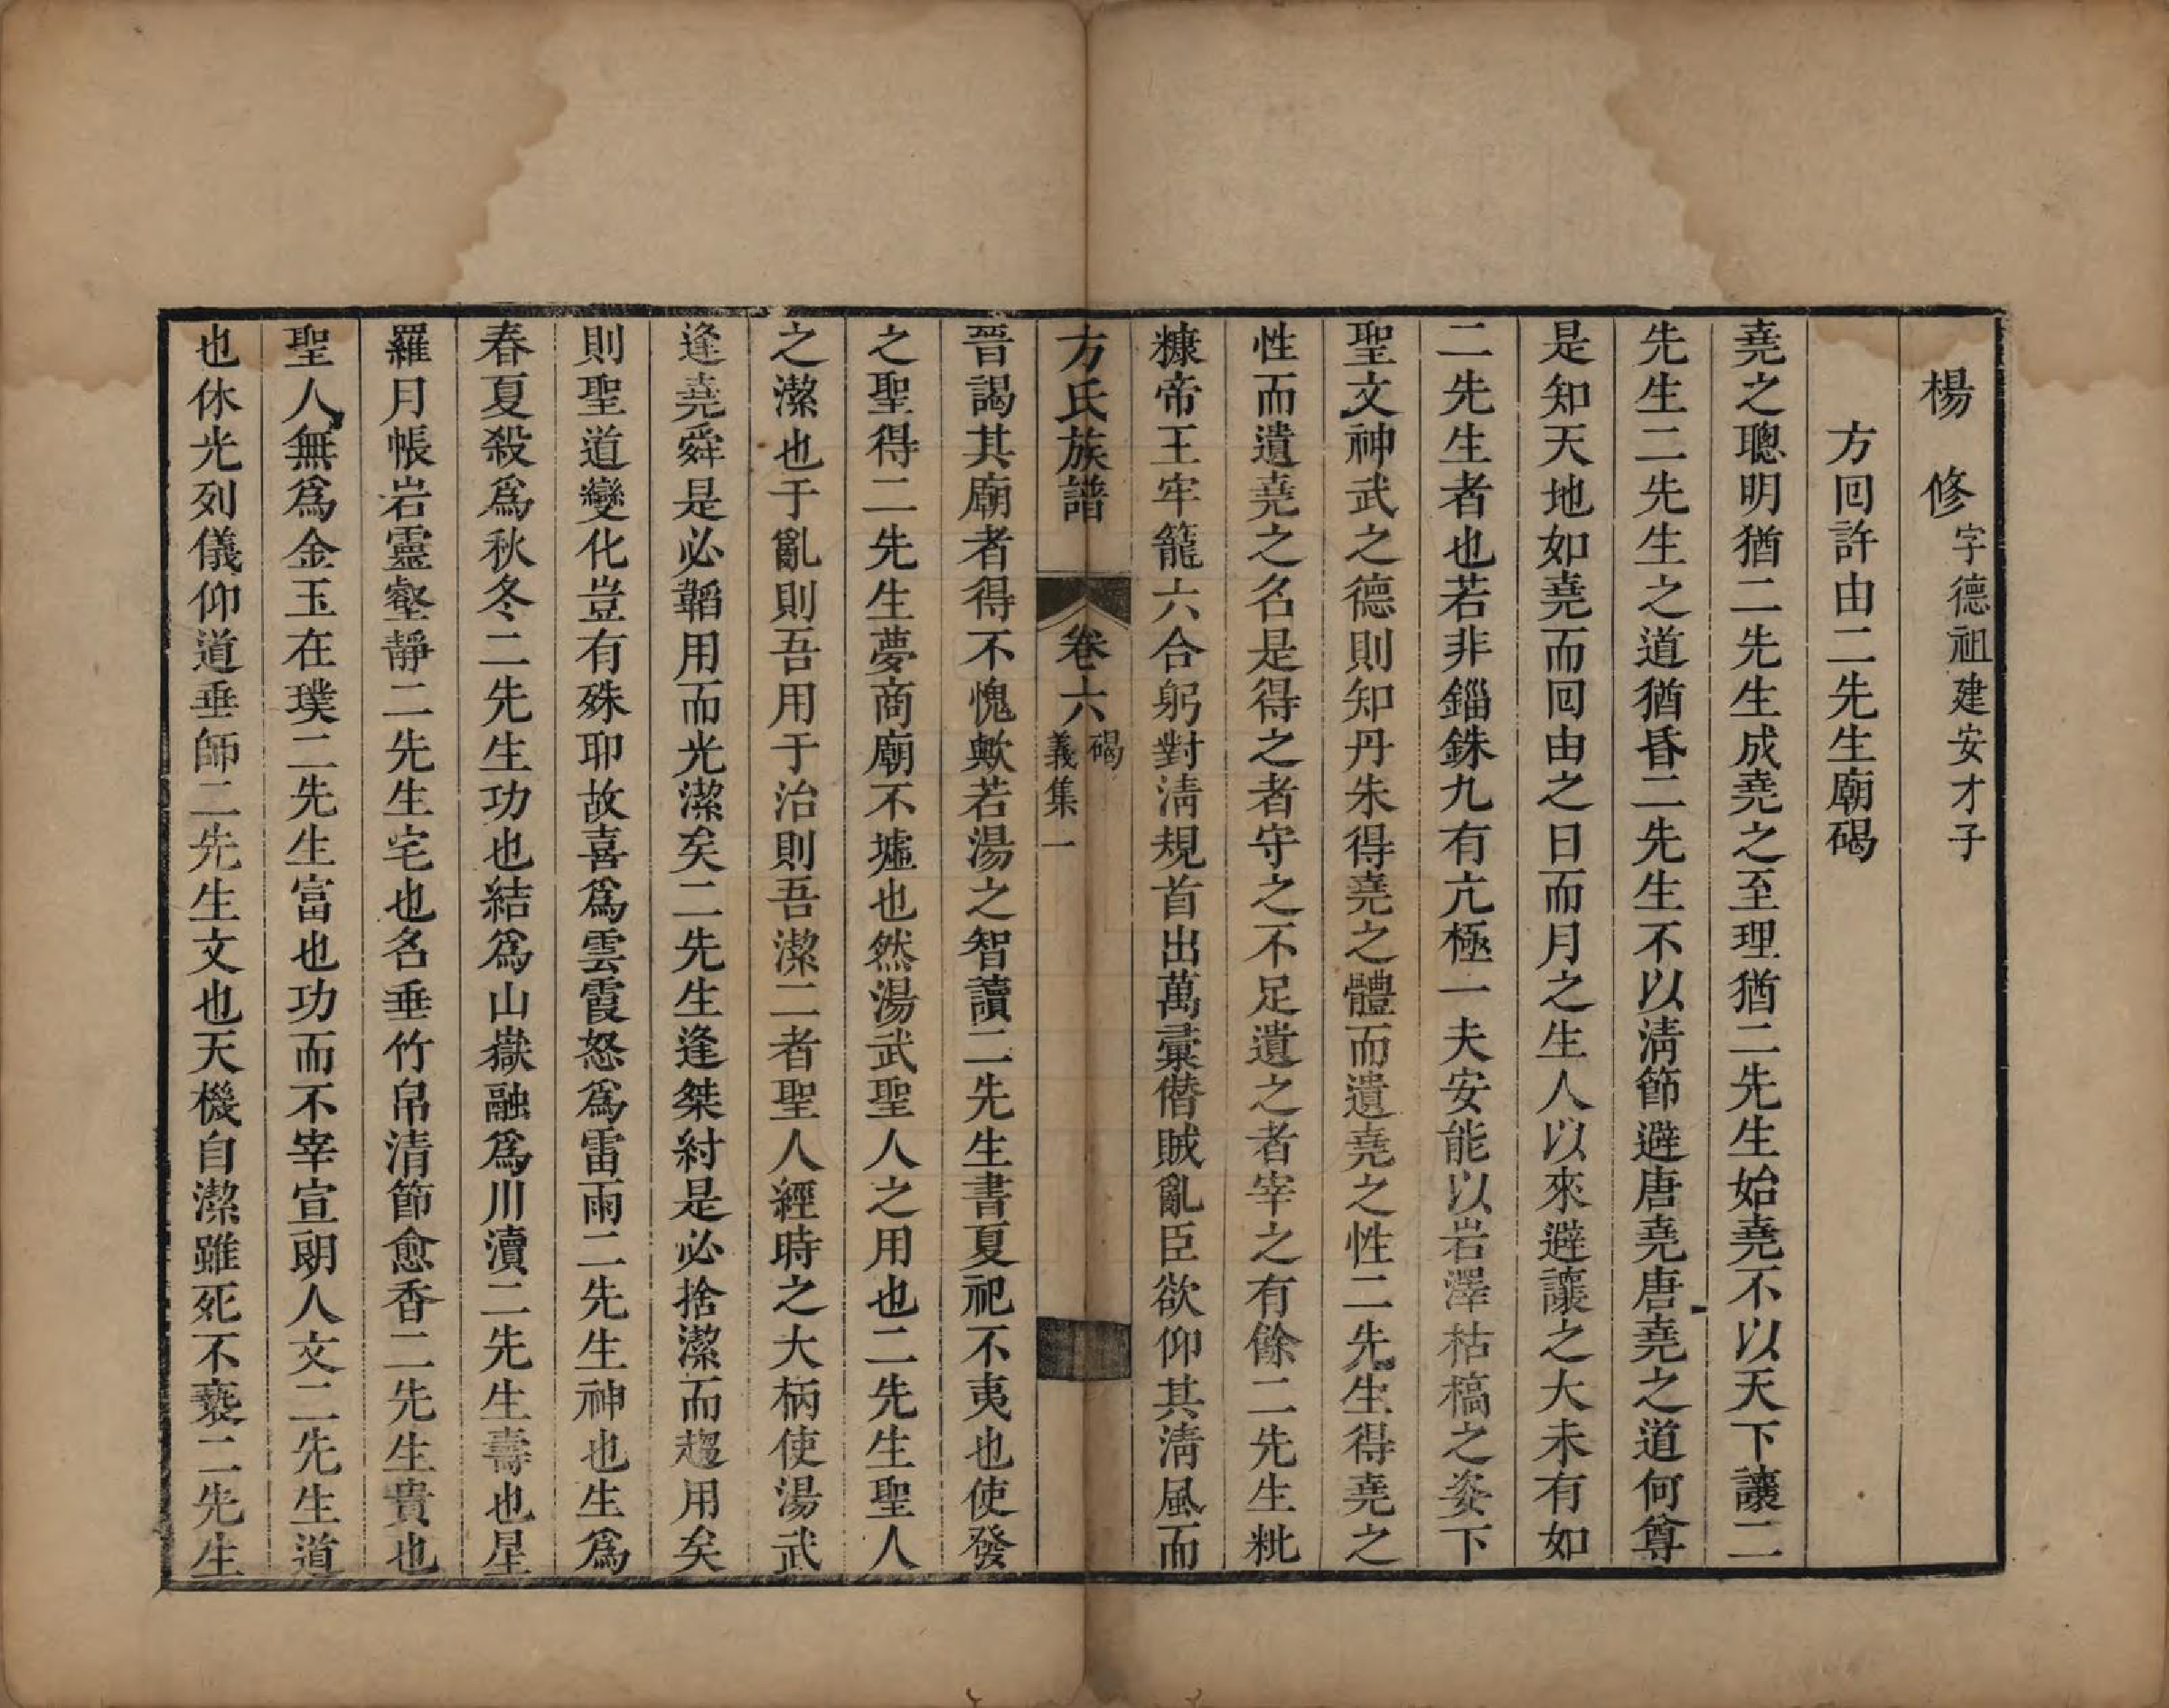 楊　修字德祖建安才子
方回許由二先生廟碣
堯之聰明猶二先生成堯之至理猶二先生始堯不以天下讓二
先生二先生之道猶昏二先生不以淸節避唐堯唐堯之道何尊
是知天地如堯而回由之日而月之生人以來避讓之大未有如
二先生者也若非錙銖九有亢極一夫安能以岩澤枯槁之姿下
聖文神武之德則知丹朱得堯之體而遺堯之性二先生得堯之
性而遺堯之名是得之者守之不足遺之者宰之有餘二先生粃
糠帝王牢籠六合躬對淸規首出萬彙僭賊亂臣欲仰其淸風而
方氏族譜　卷六　碣　義集一
晉謁其廟者得不愧歟若湯之智讀二先生書夏祀不夷也使發
之聖得二先生夢商廟不墟也然湯武聖人之用也二先生聖人
之潔也于亂則吾用于治則吾潔二者聖人經時之大柄使湯武
逢堯舜是必韜用而光潔矣二先生逢桀紂是必捨潔而趨用矣
則聖道變化豈有殊耶故喜爲雲霞怒爲雷雨二先生神也生爲
春夏殺爲秋冬二先生功也結爲山嶽融爲川瀆二先生壽也星
羅月帳岩靈壑靜二先生宅也名垂竹帛清節愈香二先生貴也
聖人無爲金玉在璞二先生富也功而不宰宣朗人文二先生道
也休光列儀仰道垂師二先生文也天機自潔雖死不䙝二先生